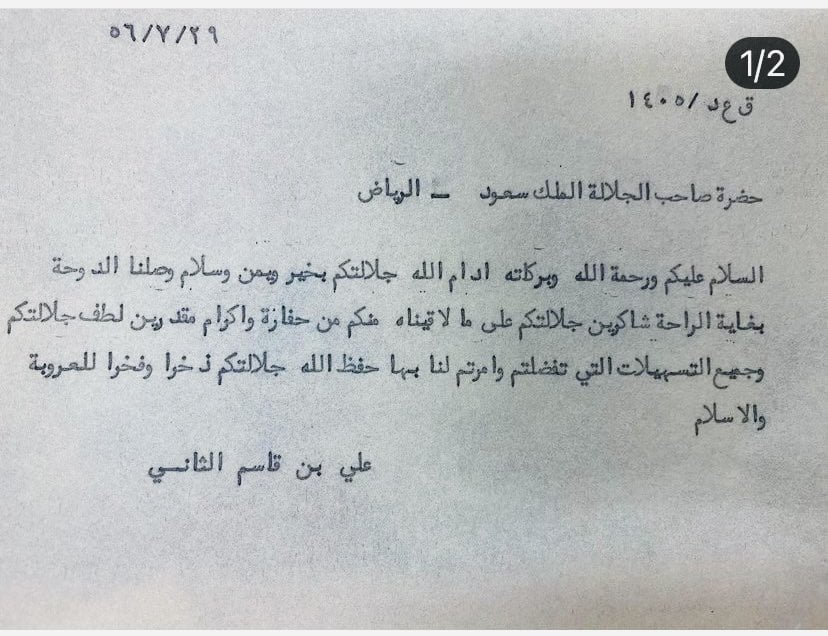 ٥٦/٧/٢٩
1/2
ق ع د /١٤٠٥
حضرة صاحب الجلالة الملك سعود ــ الرياض
السلام عليكم ورحمة الله وبركاته ادام الله جلالتكم بخير ويمن وسلام وصلنا الدوحة
بغاية الراحة شاكرين جلالتكم على ما لاقيناه منكم من حفازة واكرام مقدرين لطف جلالتكم
وجميع التسهيلات التي تفضلتم وامرتم لنا بها حفظ الله جلالتكم ذخرا وفخرا للعروبة
والاسلام
علي بن قاسم الثاني